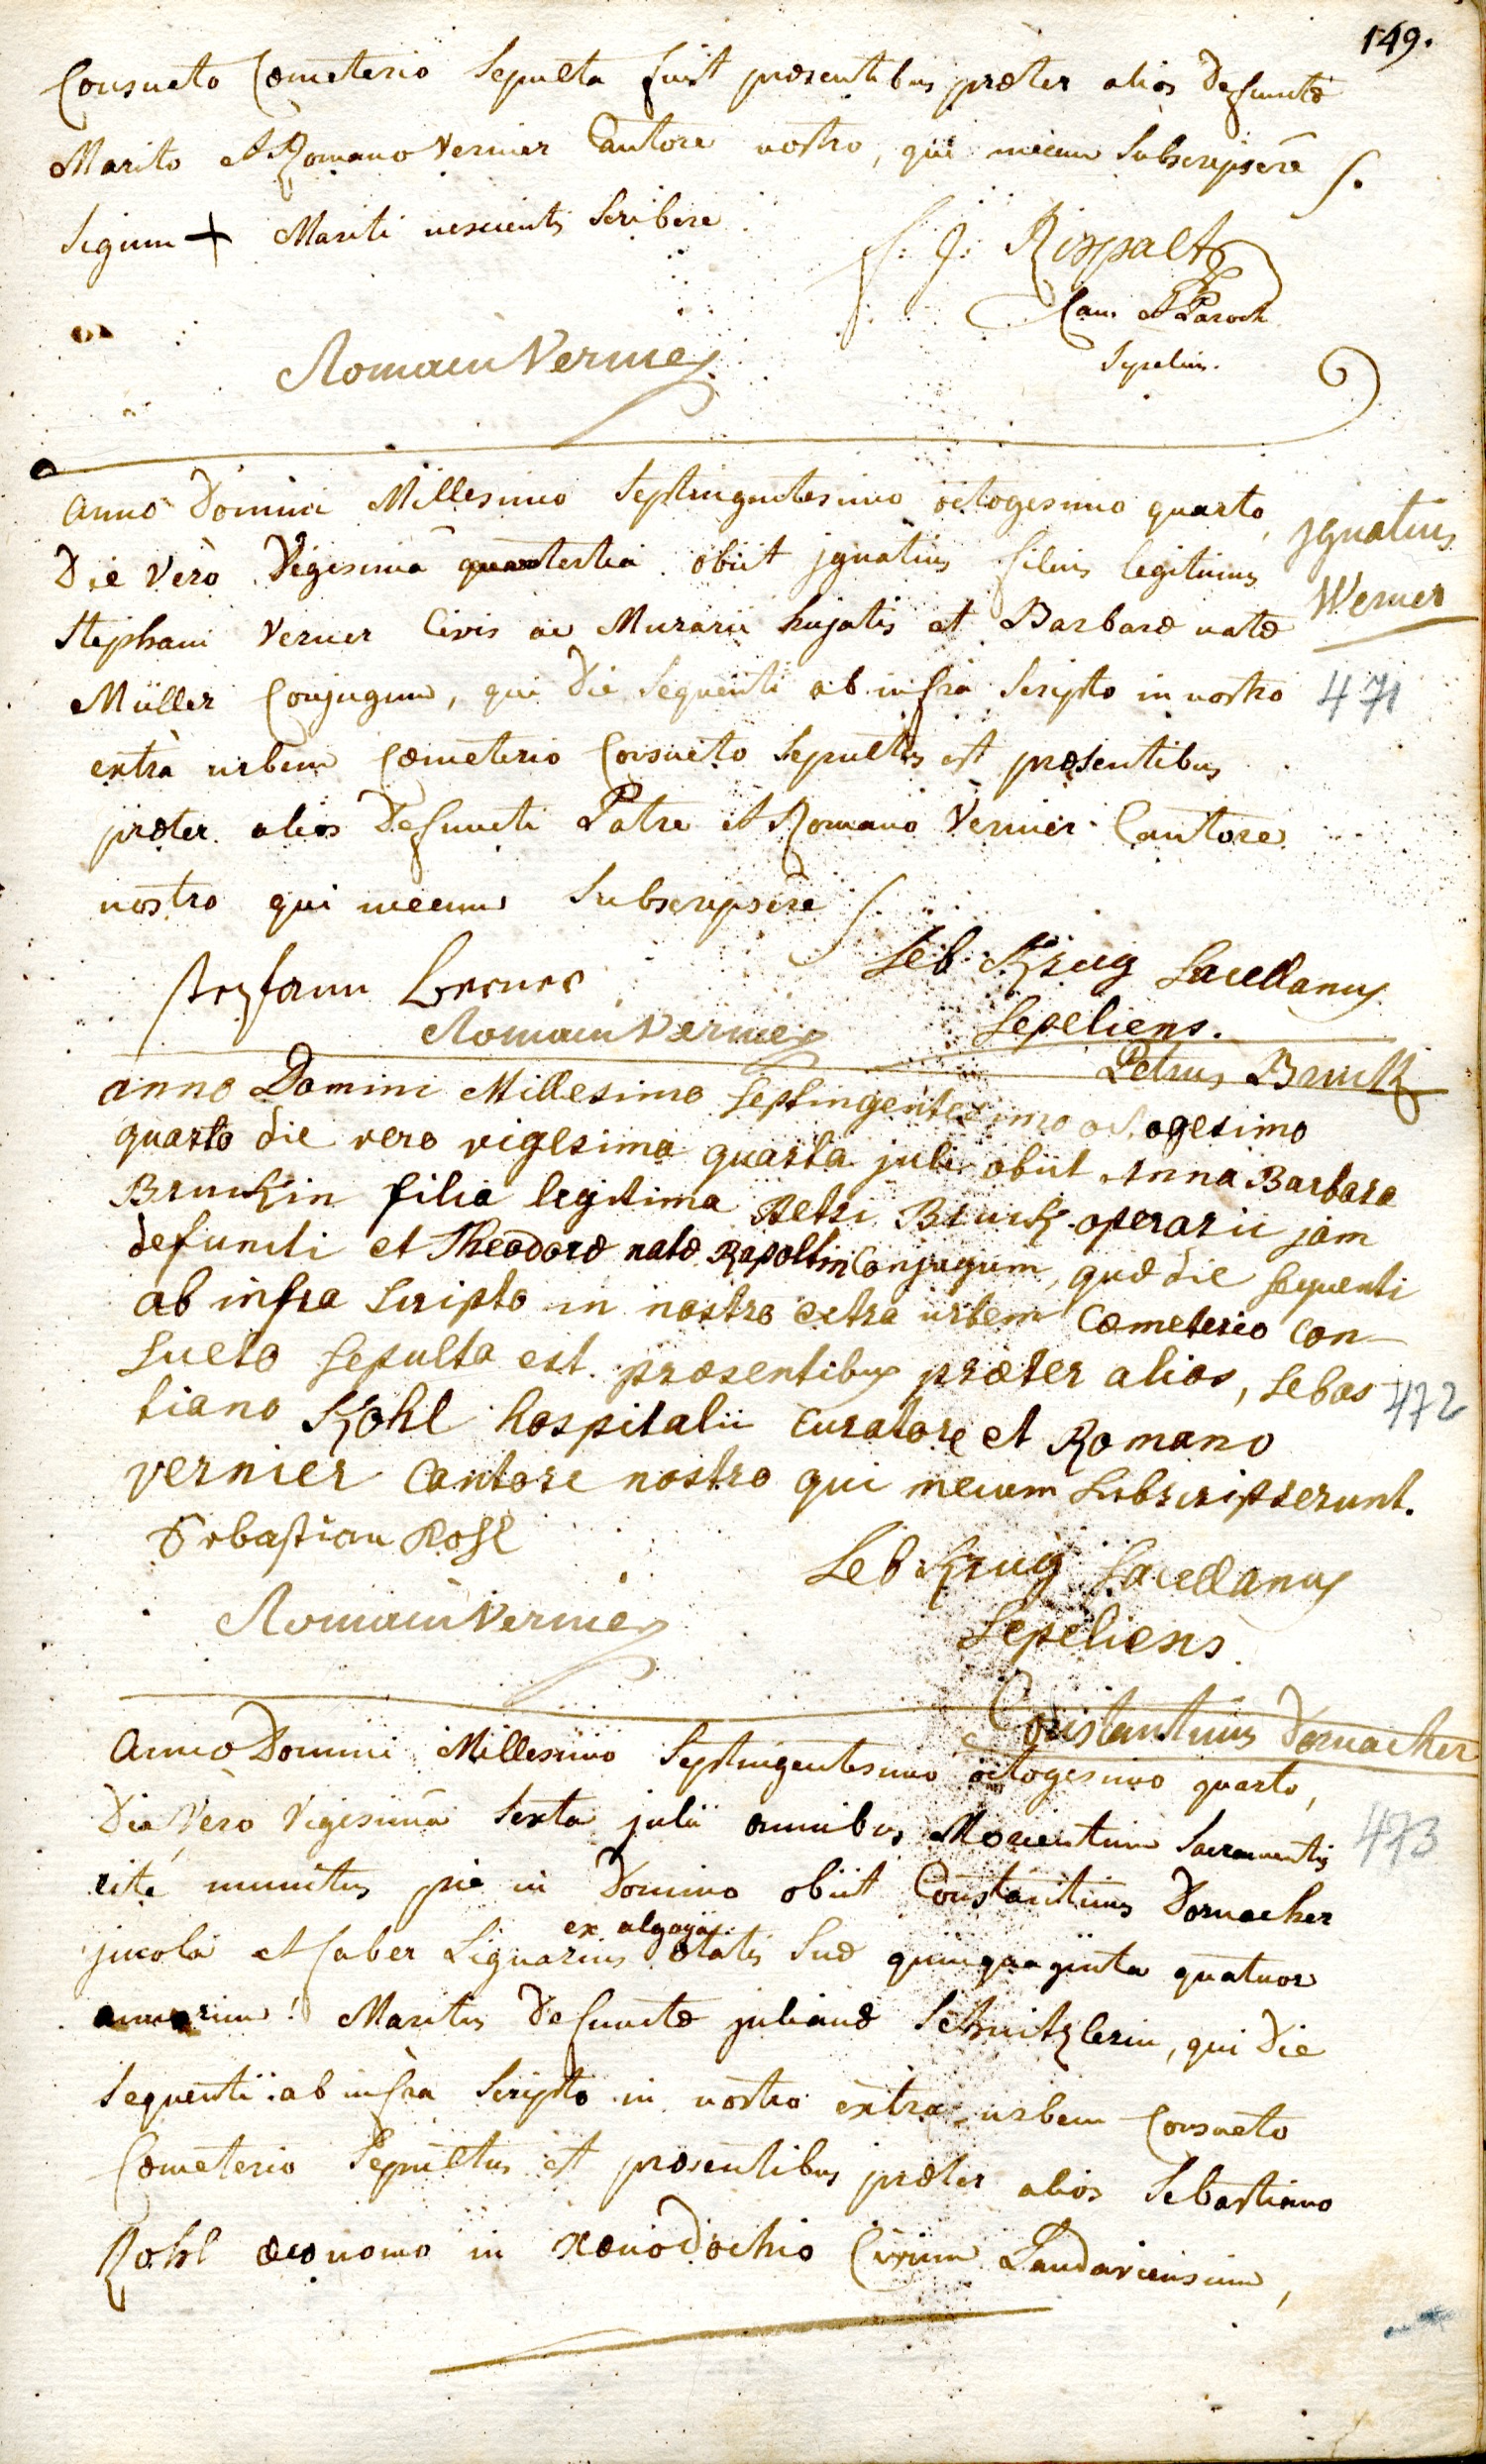 149.
Consueto Cœmeterio Sepulta fuit præsentibus præter alios Defunctæ
Marito et Romano Vernier Cantore nostro, qui mecum Subscripsêre
Signum + Mariti nescientis Scribere
f: J: Rippalt
Can. et Paroch
Sepelivi.
Romain Vernier
Anno Domini Millesimo Septingentesimo octogesimo quarto,
Ignatius
Werner
Die Verò Vigesimâ tertiâ obiit jgnatius filius legitimus
Stephani Verner Civis ac Murarii hujatis et Barbaræ natæ
Müller Conjugum, qui Die Sequenti ab infra Scripto in nostro
471
extrà urbem Cœmeterio Consueto Sepultus est præsentibus
præter alios Defuncti Patre et Romano Vernier Cantore
nostro qui mecum Subscripsêre
Seb Krug Sacellanus
Sepeliens.
Stephann Werner
Romain Vernier
Petrus Bruck
anno Domini Millesimo Septingentesimo octogesimo
quarto die vero vigesima quarta julii obiit Anna Barbara
Bruckin filia legitima Petri Bruck operarii jam
defuncti et Theodoræ natæ Rapoltin Conjugum, quæ die sequenti
ab infra Scripto in nostro extra urbem Cœmeterio con-
sueto sepulta est præsentibus præter alios, Sebas
472
tiano Kohl hospitalii curatore et Romano
vernier Cantore nostro qui mecum subscripserunt.
Sebastian Kohl
Seb Krug Sacellanus
Sepeliens
Romain Vernier
Constantinus Dornacher
Anno Domini Millesimo Septingentesimo octogesimo quarto,
Die Verò Vigesimâ Sexta julii omnibus Morientium Sacramentis
473
rite munitus pie in Domino obiit Constantinus Dornacher
ex algoyia
jncola et faber Lignarius ætatis Suæ quinquaginta quatuor
annorum! Maritus Defunctæ julianæ Schnitzlerin, qui Die
Sequenti ab infra Scripto in nostro extra urbem Consueto
Cœmeterio Sepultus est præsentibus præter alios Sebastiano
Kohl œconomo in Xenodochio Civium Landaviensium,